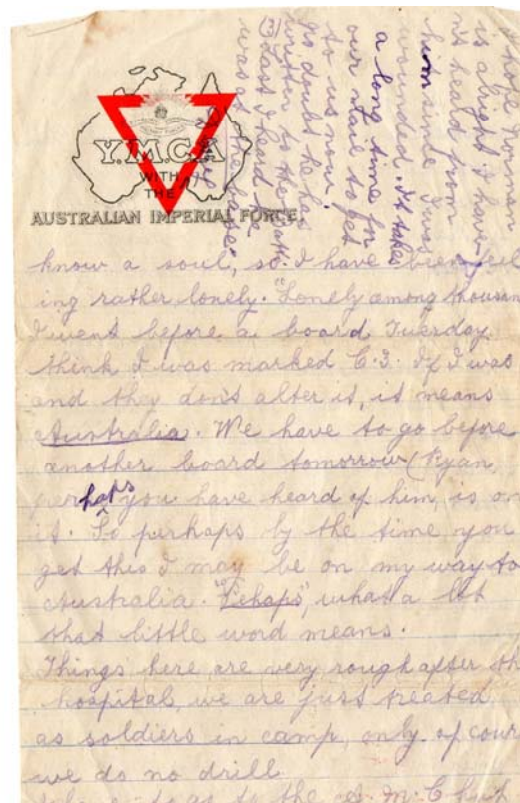 Y.M.C.A.
WITH
THE
AUSTRALIAN IMPERIAL FORCE.
hope Norman
is alright I have
n't heard from
him since I was
wounded. It takes
a long time for
our mail to get
to us now.
no doubt he has
written to the
(3) Last I heard he
was at the base.
know a soul, so I have been feel
ing rather lonely. "Lonely among thousan
I went before a board Tuesday.
think I was marked C.3. If I was
and they don't alter it, it means
Australia. We have to go before
another board tomorrow (Ryan,
perhaps you have heard of him, is on
it. So perhaps by the time you
get this I may be on my way to
Australia. "Pehaps", what a lot
that little word means.
Things here are very rough after the
hospital, we are just treated
as soldiers in camp, only of cour
we do no drill
to go to the Y.M.C